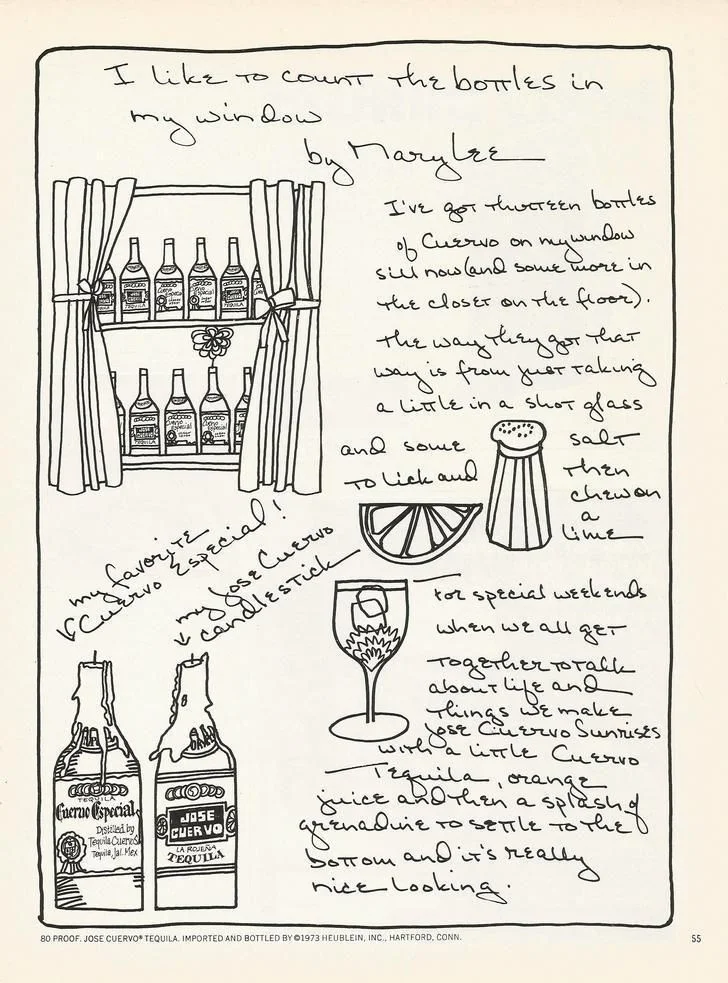 I like to count the bottles in
my window
by Mary Lee
I've got thirteen bottles
of Cuervo on my window
sill now (and some more in
the closet on the floor).
The way they got that
way is from just taking
a little in a shot glass
and some salt
to lick and then
chew on
a
lime
my favorite
Cuervo Especial!
my Jose Cuervo
candlestick
For special weekends
when we all get
together to talk
about life and
things we make
Jose Cuervo Sunrises
with a little Cuervo
Tequila, orange
juice and then a splash of
grenadine to settle to the
bottom and it's really
nice looking.
TEQUILA
Cuervo Especial
Distilled by
Tequila Cuervo S
Tequila, Jal. Mex
JOSE
CUERVO
LA ROJEÑA
TEQUILA
80 PROOF. JOSE CUERVO® TEQUILA. IMPORTED AND BOTTLED BY ©1973 HEUBLEIN, INC., HARTFORD, CONN.
55